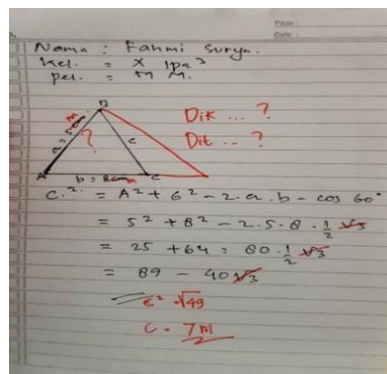 Page :
Date :
Nama : Fahmi Surya.
Kel. = X Ipa 3
pel. = M M.
B
Dik ... ?
a = 5cm m
?
c
Dit .. ?
A
b = 8cm m
C
c.² = A² + 6² - 2. a. b - cos 60°
= 5² + 8² - 2. 5. 8. 1/2 √3
= 25 + 64 = 80. 1/2 √3
= 89 - 40 √3
c² = √49
C - 7M